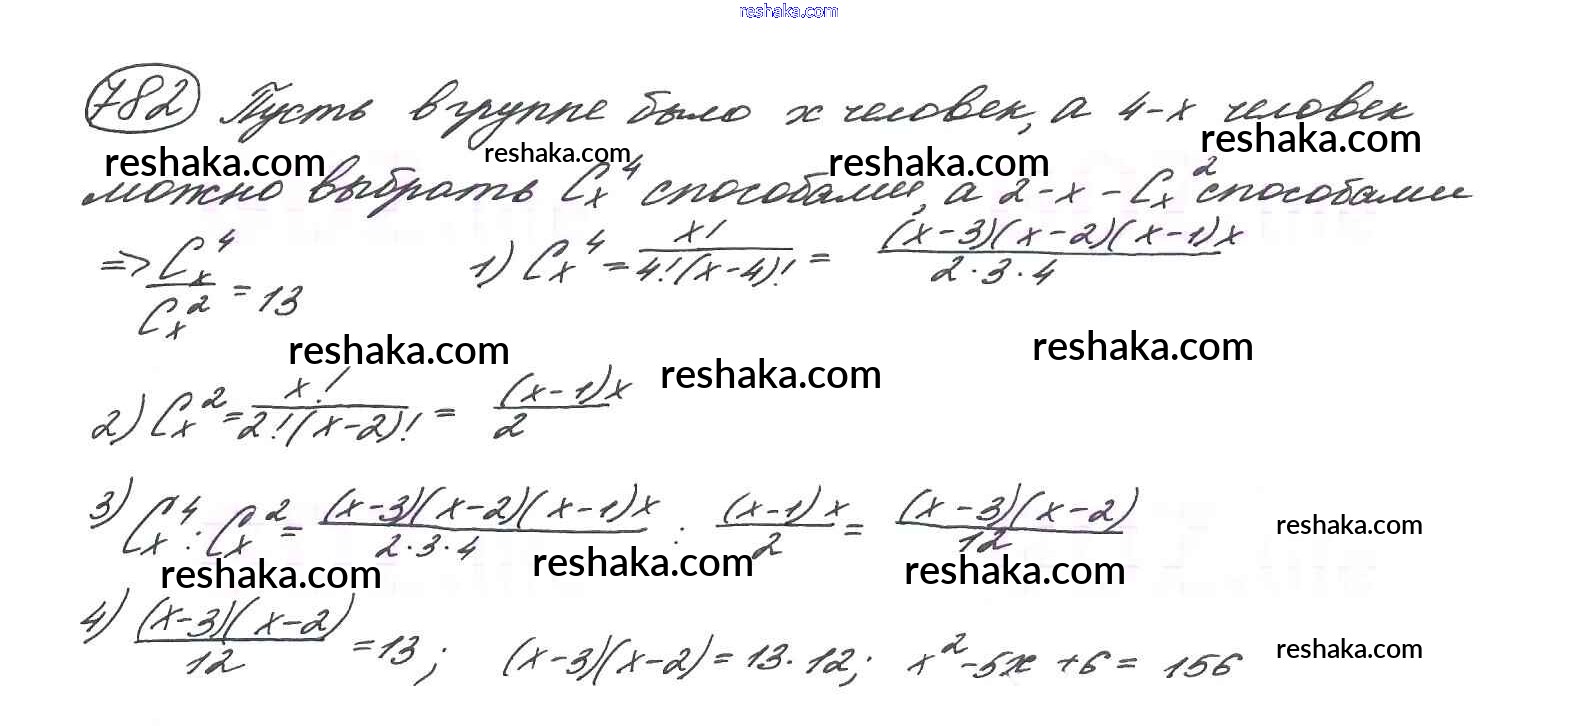 reshaka.com
782 Пусть в группе было x человек, а 4-x человек
reshaka.com reshaka.com reshaka.com reshaka.com
можно выбрать C_x^4 способами, а 2-x - C_x^2 способами
=> C_x^4 / C_x^2 = 13 1) C_x^4 = x! / 4!(x-4)! = (x-3)(x-2)(x-1)x / 2·3·4
reshaka.com reshaka.com reshaka.com
2) C_x^2 = x! / 2!(x-2)! = (x-1)x / 2
3) C_x^4 : C_x^2 = (x-3)(x-2)(x-1)x / 2·3·4 : (x-1)x / 2 = (x-3)(x-2) / 12 reshaka.com
reshaka.com reshaka.com reshaka.com
4) (x-3)(x-2) / 12 = 13; (x-3)(x-2) = 13·12; x^2-5x+6 = 156 reshaka.com